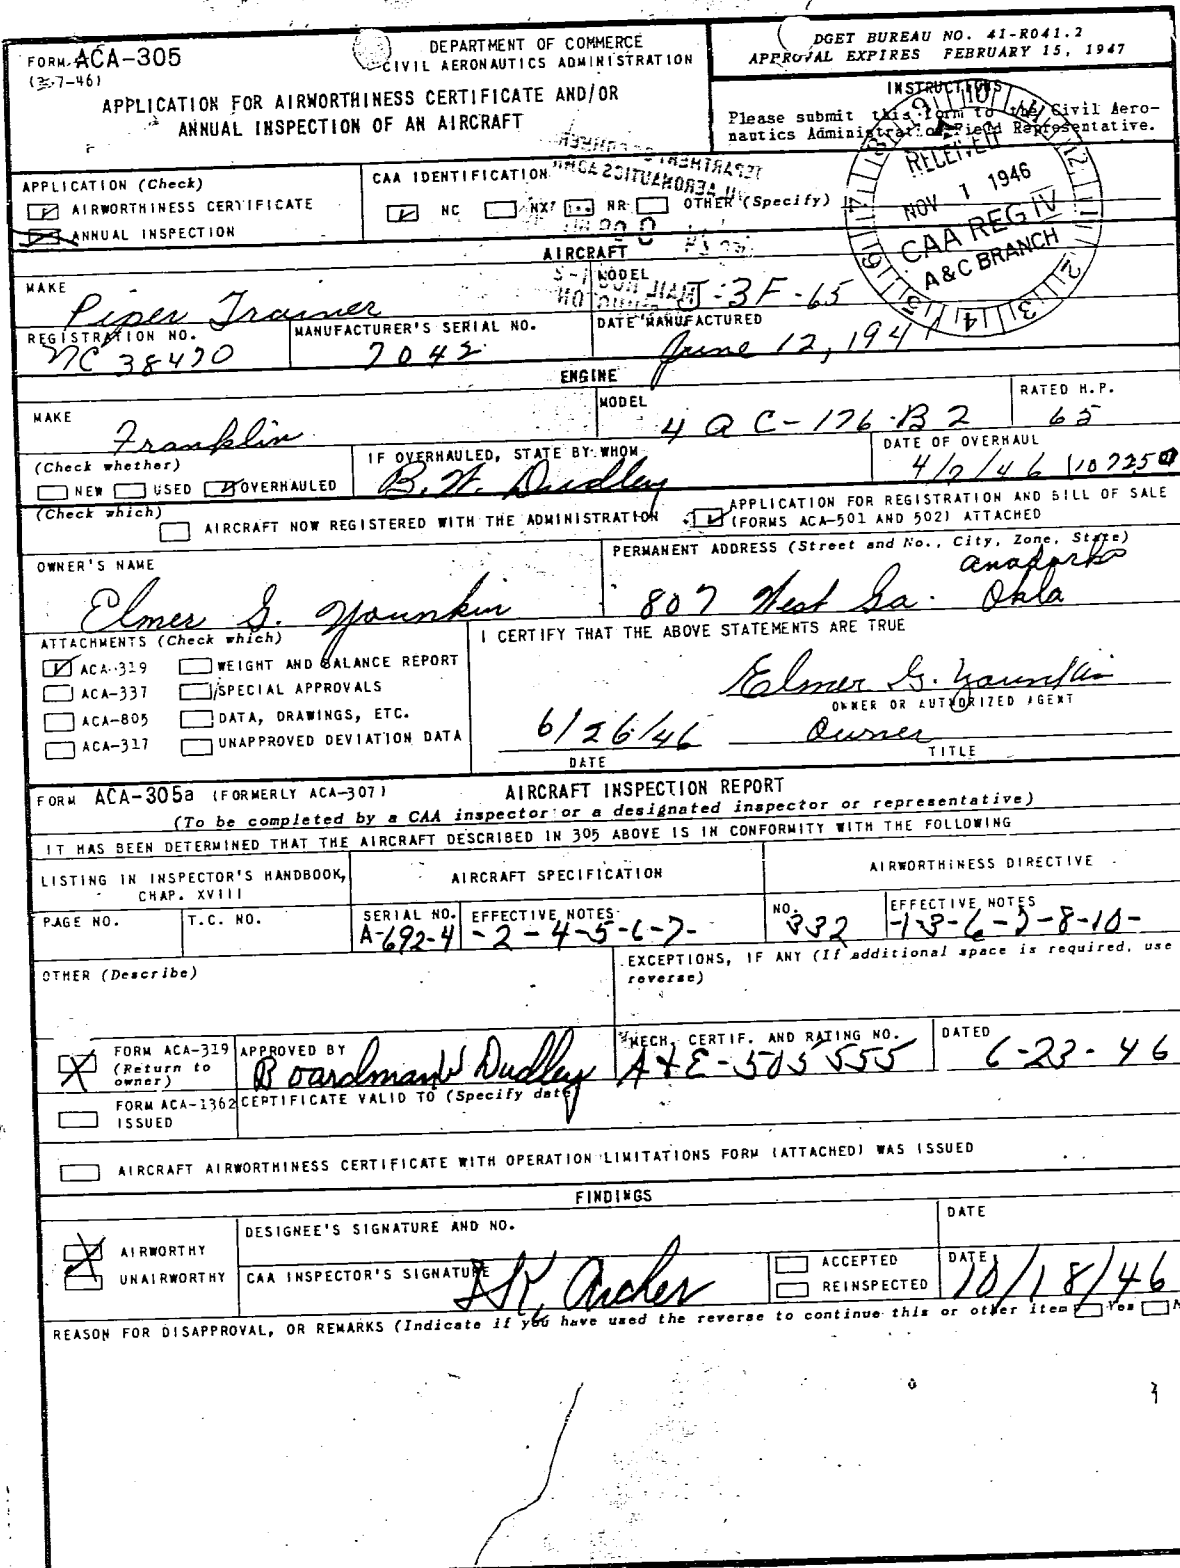 FORM ACA-305
(3-7-46)
DEPARTMENT OF COMMERCE
CIVIL AERONAUTICS ADMINISTRATION
APPLICATION FOR AIRWORTHINESS CERTIFICATE AND/OR
ANNUAL INSPECTION OF AN AIRCRAFT
DGET BUREAU NO. 41-R041.2
APPROVAL EXPIRES FEBRUARY 15, 1947
INSTRUCTIONS
Please submit this form to the Civil Aero-
nautics Administration Field Representative.
RECEIVED
NOV 1 1946
CAA REG IV
A&C BRANCH
APPLICATION (Check)
AIRWORTHINESS CERTIFICATE
ANNUAL INSPECTION
CAA IDENTIFICATION
NC NX NR OTHER (Specify)
AIRCRAFT
MAKE
Piper Trainer
MODEL
J-3F-65
REGISTRATION NO.
NC 38470
MANUFACTURER'S SERIAL NO.
7042
DATE MANUFACTURED
June 12, 1941
ENGINE
MAKE
Franklin
MODEL
4 A C-176-B2
RATED H.P.
65
(Check whether)
NEW USED OVERHAULED
IF OVERHAULED, STATE BY WHOM
B. W. Dudley
DATE OF OVERHAUL
4/2/46
(Check which)
AIRCRAFT NOW REGISTERED WITH THE ADMINISTRATION
APPLICATION FOR REGISTRATION AND BILL OF SALE
(FORMS ACA-501 AND 502) ATTACHED
OWNER'S NAME
Elmer G. Younkin
PERMANENT ADDRESS (Street and No., City, Zone, State)
Anadarko
807 West Ga. Okla
ATTACHMENTS (Check which)
ACA-319 WEIGHT AND BALANCE REPORT
ACA-337 SPECIAL APPROVALS
ACA-805 DATA, DRAWINGS, ETC.
ACA-317 UNAPPROVED DEVIATION DATA
I CERTIFY THAT THE ABOVE STATEMENTS ARE TRUE
Elmer G. Younkin
OWNER OR AUTHORIZED AGENT
6/26/46 Owner
DATE TITLE
FORM ACA-305a (FORMERLY ACA-307) AIRCRAFT INSPECTION REPORT
(To be completed by a CAA inspector or a designated inspector or representative)
IT HAS BEEN DETERMINED THAT THE AIRCRAFT DESCRIBED IN 305 ABOVE IS IN CONFORMITY WITH THE FOLLOWING
LISTING IN INSPECTOR'S HANDBOOK,
CHAP. XVIII
AIRCRAFT SPECIFICATION
AIRWORTHINESS DIRECTIVE
PAGE NO.
T.C. NO.
SERIAL NO.
A-692-4
EFFECTIVE NOTES
-2-4-5-6-7-
NO.
332
EFFECTIVE NOTES
-1-3-6-7-8-10-
OTHER (Describe)
EXCEPTIONS, IF ANY (If additional space is required, use
reverse)
FORM ACA-319
(Return to
owner)
APPROVED BY
Boardman W Dudley
MECH. CERTIF. AND RATING NO.
A&E-505555
DATED
6-23-46
FORM ACA-1362
ISSUED
CERTIFICATE VALID TO (Specify date)
AIRCRAFT AIRWORTHINESS CERTIFICATE WITH OPERATION LIMITATIONS FORM (ATTACHED) WAS ISSUED
FINDINGS
AIRWORTHY
UNAIRWORTHY
DESIGNEE'S SIGNATURE AND NO.
DATE
CAA INSPECTOR'S SIGNATURE
Archer
ACCEPTED
REINSPECTED
DATE
10/18/46
REASON FOR DISAPPROVAL, OR REMARKS (Indicate if you have used the reverse to continue this or other item Yes